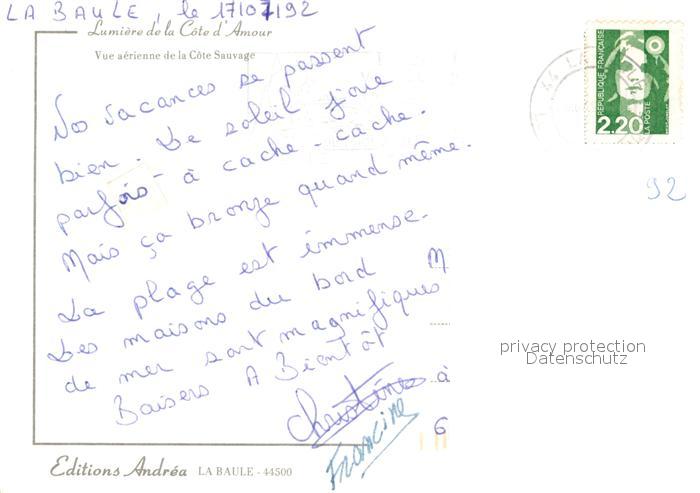 LA BAULE, le 17/07/92
Lumière de la Côte d'Amour
Vue aérienne de la Côte Sauvage
Nos vacances se passent
bien. Le soleil joue
parfois à cache-cache.
Mais ça bronze quand même.
La plage est immense.
Les maisons du bord
de mer sont magnifiques
Baisers A Bientôt
Christine
Francine
M
à
6
Editions Andréa LA BAULE - 44500
REPUBLIQUE FRANÇAISE
2,20
LA POSTE
44 L
92
privacy protection
Datenschutz